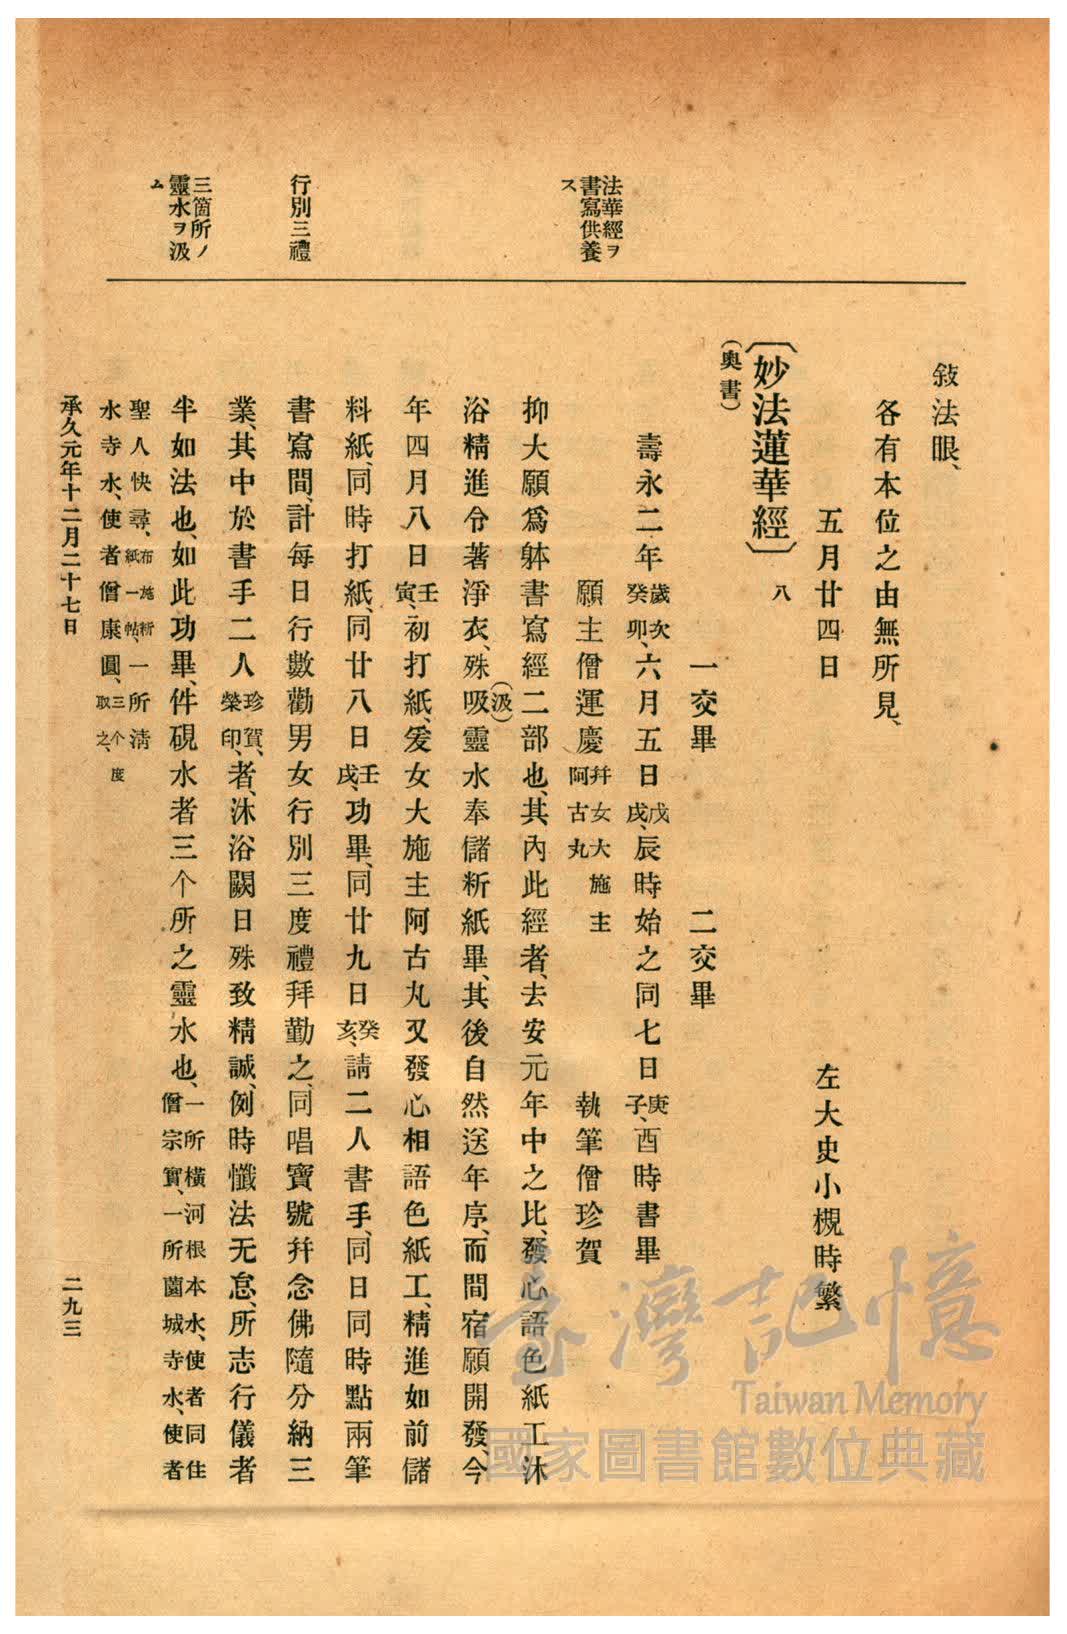 法華經ヲ
書寫供養
ス
行別三禮
三箇所ノ
靈水ヲ汲
ム
敍法眼、
各有本位之由無所見、
五月廿四日
左大史小槻時繁
〔妙法蓮華經〕八
(奧書)
一交畢 二交畢
壽永二年歲次癸卯、六月五日戊戌、辰時始之同七日庚子、酉時書畢
願主僧運慶幷女大施主阿古丸 執筆僧珍賀
抑大願爲躰書寫經二部也、其內此經者、去安元年中之比、發心語色紙工沐
浴精進令著淨衣、殊吸(汲)靈水奉儲析紙畢、其後自然送年序、而間宿願開發、今
年四月八日壬寅、初打紙、爰女大施主阿古丸又發心相語色紙工、精進如前儲
料紙、同時打紙、同廿八日壬戌、功畢、同廿九日癸亥、請二人書手、同日同時點兩筆
書寫間、計每日行數勸男女行別三度禮拜勤之、同唱寶號幷念佛隨分納三
業、其中於書手二人珍賀、榮印、者、沐浴闕日殊致精誠、例時懺法无怠、所志行儀者
半如法也、如此功畢、件硯水者三个所之靈水也、一所橫河根本水、使者同住僧宗實、一所薗城寺水、使者
聖人快尋、布施析紙一帖、一所淸
水寺水、使者僧康圓、三个度取之、
承久元年十二月二十七日
二九三
臺灣記憶
Taiwan Memory
國家圖書館數位典藏